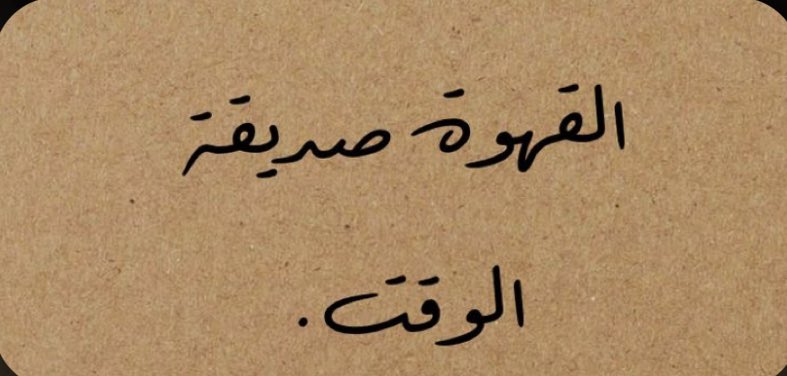 القهوة صديقة
الوقت.